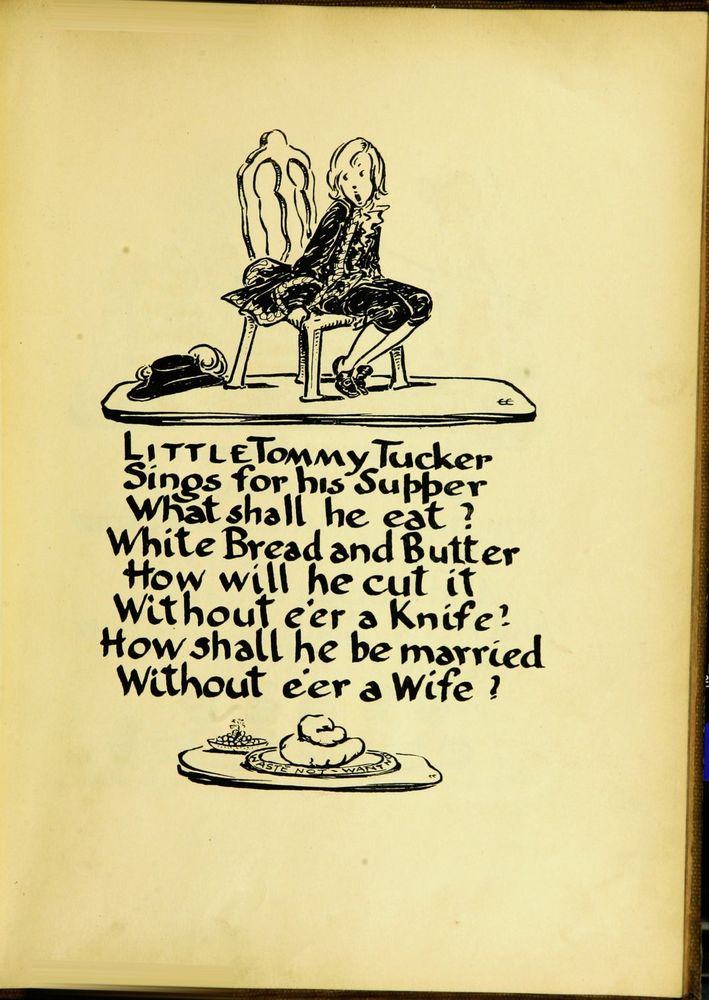 CC
LITTLE TOMMY Tucker
Sings for his Supper
What shall he eat ?
White Bread and Butter
How will he cut it
Without e'er a Knife?
How shall he be married
Without e'er a Wife ?
WASTE NOT - WANT